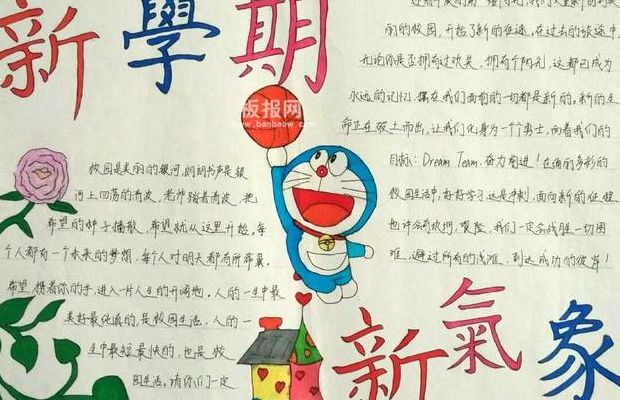 新學期
板报网
www.banbaow.com
的校园,开起了新的征途,在过去的
无论你是否拥有过欢笑,拥有个阳光,这都已成为
永远的记忆,摆在我们面前的一切都是新的,新的生
命正在破土而出,让我们化身为一个勇士,向着我们的
目标:Dream Team,奋力前进!在绚丽多彩的
校园生活中,好好学习这是冲刺,面向新的征程
也许会有坎坷,艰险,我们一定会战胜一切困
难,避过所有的浅滩,到达成功的彼岸!
校园是美丽的银河,朗朗书声是银
河上回荡的清波,老师踏着清波,把
希望的种子播散,希望就从这里开始,每
个人都有一个未来的梦想,每个人对明天都有所希冀。
希望,携着你的手,进入一片人生的开阔地。人的一生中最
美好最纯真的,是校园生活,人的一
生中最短最快的,也是校
园生活,请你们一定
新氣象